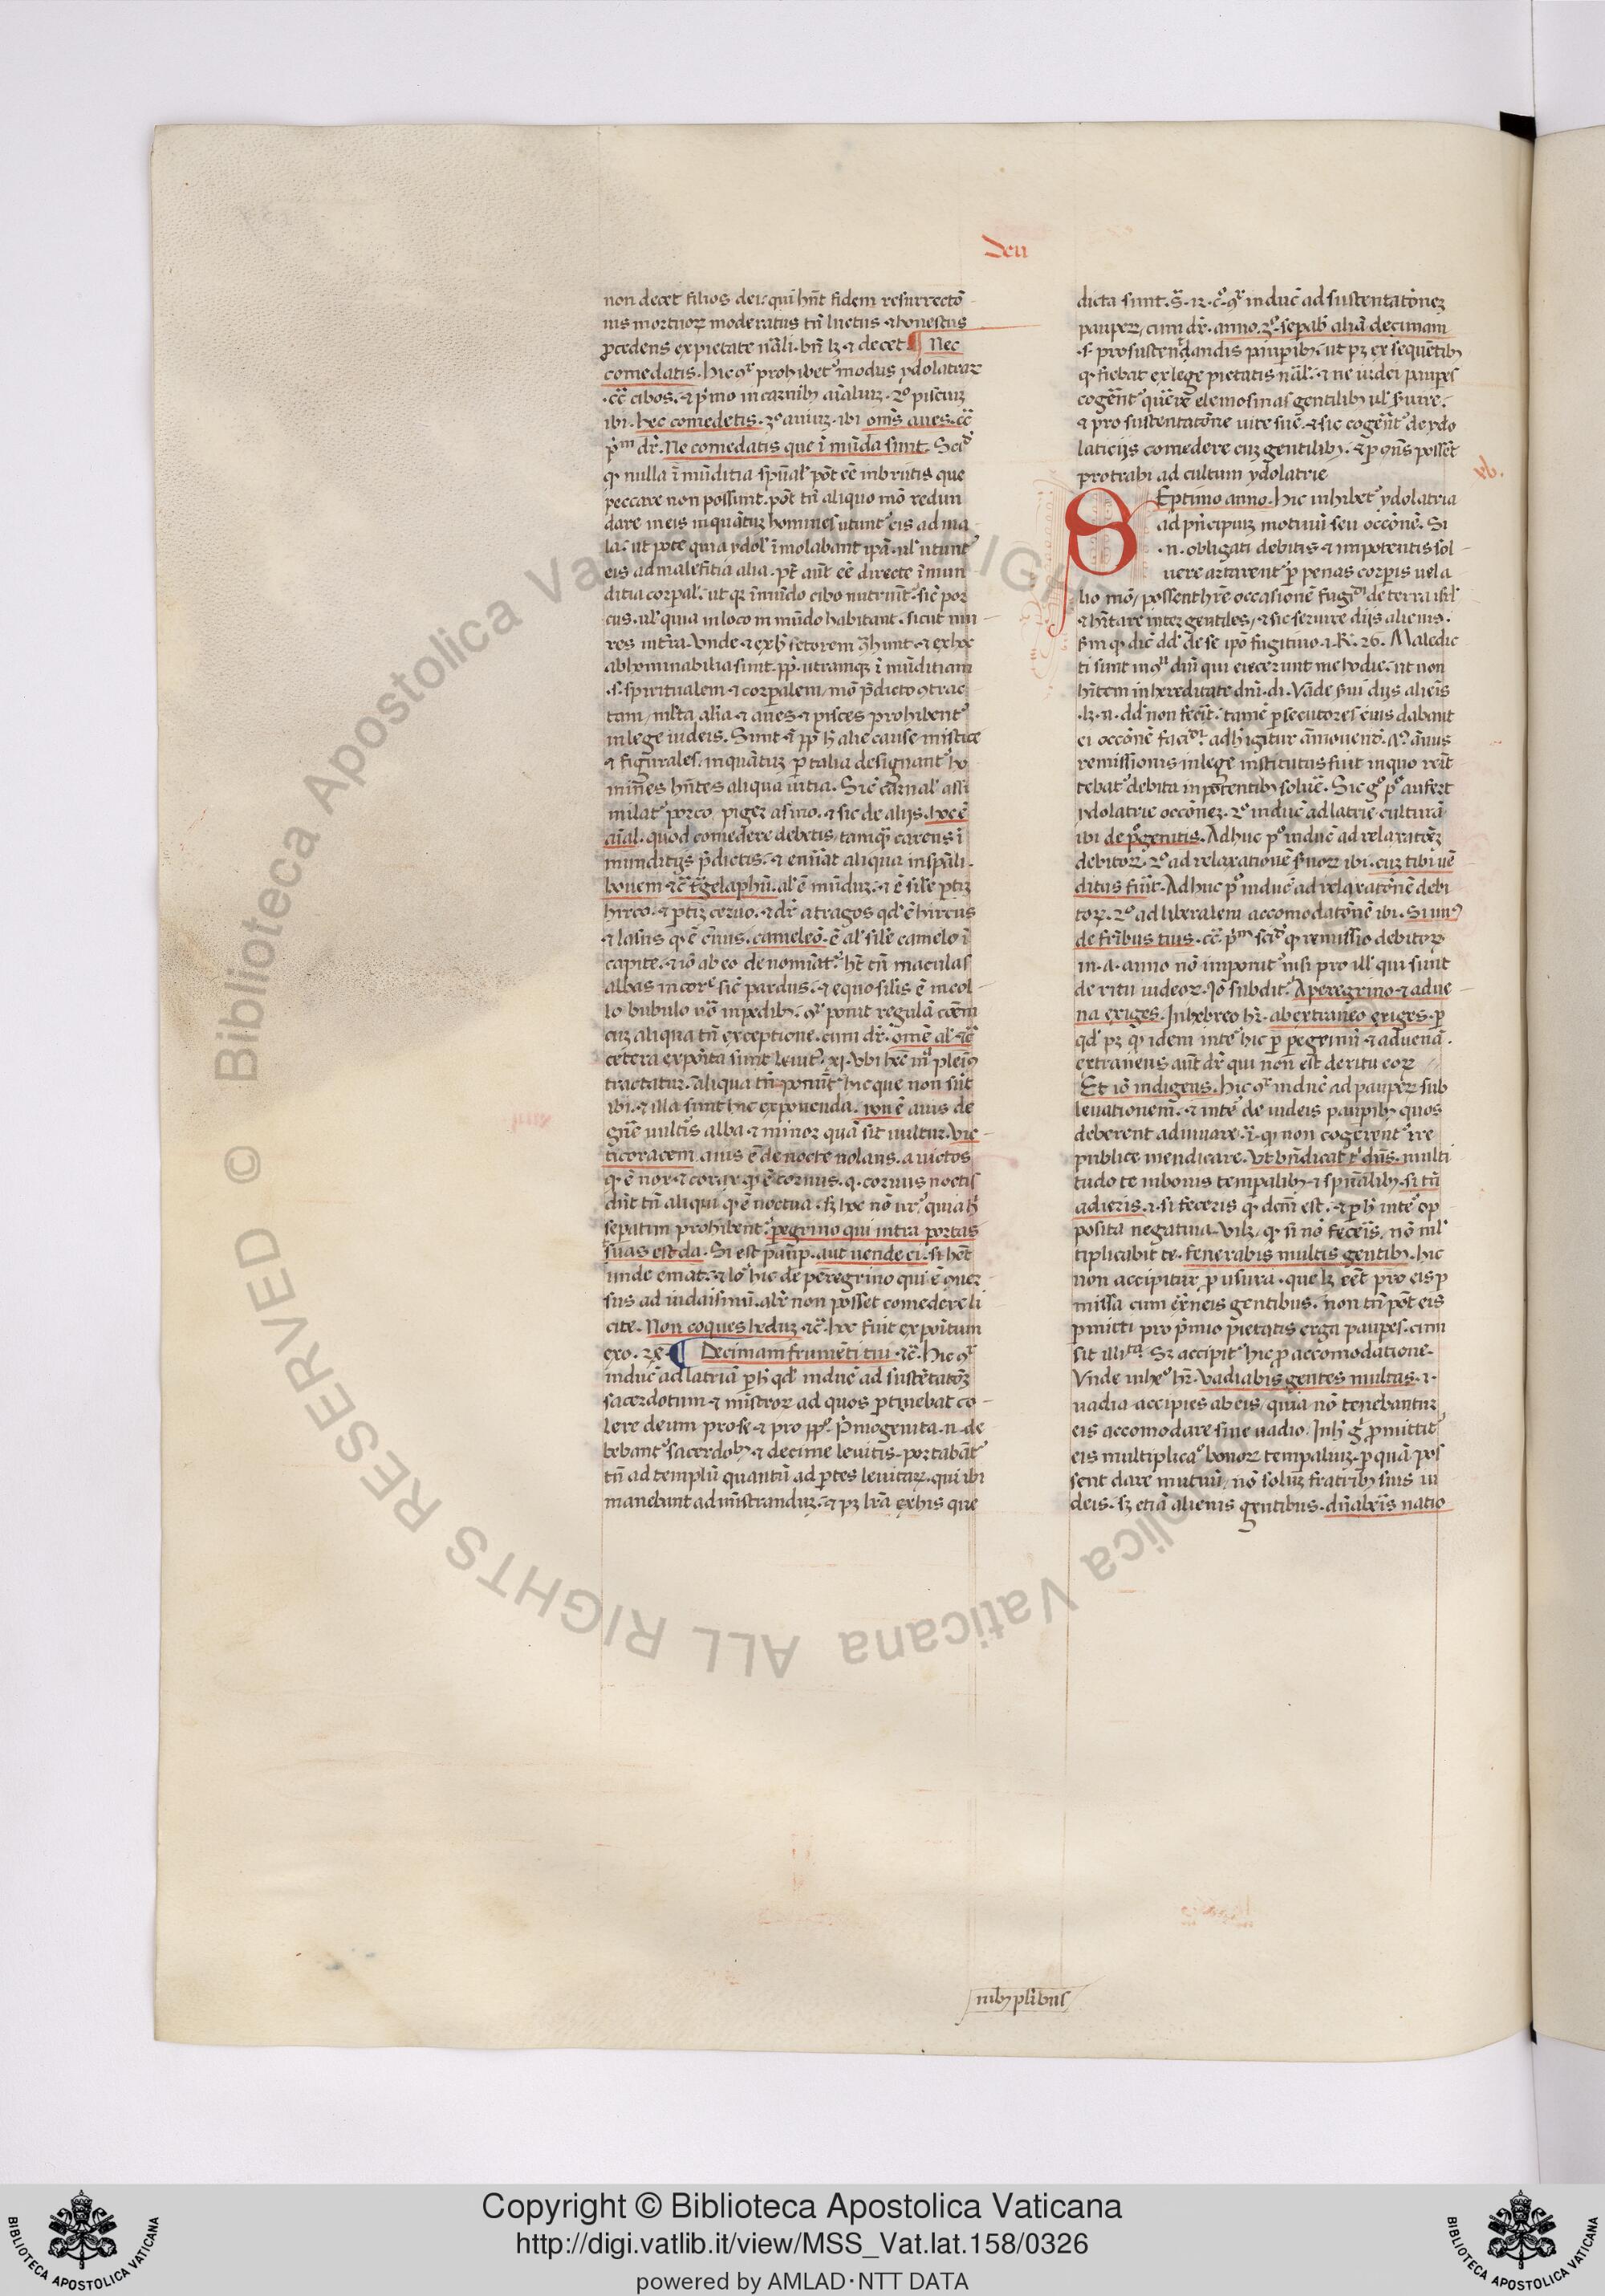 Deu
non decet filios dei: qui hn̄t fidem resurrectō
nis mortuoꝝ moderatus tn̄ luctus ⁊ honestus
ꝓcedens ex pietate nāli. bn̄ lꝫ ⁊ decet. ¶ Nec
comedatis. Hic 9ͬ prohibet᷑ modus ydolatraꝝ
.cc̄ cibos. ⁊ pͥmo in carnibꝫ aīaliuꝫ. 2º pisciuꝫ
ibi. hec comedetis. 3º auiuꝫ. ibi om̄s aues. cc̄
pͥm dr̄. Ne comedatis que ī mūda sunt. Sciᵈ
ꝙ nulla ī mūditia sp̄ual᷑ pōt eē in brutis que
peccare non possunt. pōt tn̄ aliquo mō redun
dare in eis inquātuꝫ homines utunt᷑ eis ad ma
la. ut pote quia ydol᷑ īmolabant ipā. ul᷑ utunt᷑
eis ad maleficia alia. pt̄ aūt eē directe ī mun
ditia corpal᷑. ut qꝛ īmūdo cibo nutriūt᷑. sic̄ por
cus. ul᷑ quia in loco in mūdo habitant. sicut mu
res
abhominabilia sunt. ꝓp̄ utramqꝫ ī mūditiam
.s. spiritualem ⁊ corꝑalem / mō p̄dicto 9trac
tam / ml̄ta aīa ⁊ aues ⁊ pisces prohibent᷑
in lege iudeis. Sunt ⁊ī ꝓp̄ h̄ alie cause mistice
⁊ figurales. inquātuꝫ ꝑ talia designant᷑ ho
mīnes hn̄tes aliqua uitia. Sic̄ carnal᷑ assi
milat᷑ porco. piger asino. ⁊ sic de alijs. hoc ē
aīal. quod comedere debetis / tamqᷓ carens ī
munditijs p̄dictis. ⁊ enūat aliqua in sp̄ali.
bouem ⁊c̄ tᷓgelaphū. al᷑ ē mūduꝫ. ⁊ ē sil̄e ꝑtiꝫ
hirco. ⁊ ꝑtiꝫ ceruo. ⁊ dr̄ a tragos qd᷑ ē hircus
⁊ lasus qͩ ē c̄uus. cameleō. ē al᷑ sil̄e camelo ī
capite. ⁊ iō ab eo denomīat᷑. ht̄ tn̄ maculas
albas in corꝑe sic̄ pardus. ⁊ equo sil̄is ē in col
lo bubulo u̇o in pedibꝫ. 9ͬ ponit regulā cōēm
cuꝫ aliqua tn̄ exceptione. cum dr̄. om̄e al᷑ ⁊c̄
cetera exp̄ita sunt leuit᷑. xj. ubi hec mͣ pleniꝰ
tractatur. aliqua tn̄ ponūt᷑ hic que non sūt
ibi. ⁊ illa sunt hic exponenda. ion ē auis de
gn̄e uultis alba ⁊ minor quā sit uultur. Nic
ticoracem. auis ē de nocte uolans. a nictos
qͩ ē nox. ⁊ corax qͩ ē coruus. q. coruus noctis
dn̄t tn̄ aliqui ꝙ ē noctua. sꝫ hoc nō ur̄. quia h̄
sepatim prohibent᷑. ꝑegrino qui intra portas
tuas est da. Si est pauꝑ. aut uende ei. si hēt
unde emat. ⁊ lo᷑ hic de peregrino qui ē 9uer
sus ad iudaismū. al̄r non posset comedere li
cite. Non coques heduꝫ ⁊c̄. hoc fuit exp̄itum
exo. 23. ¶ Decimam frumēti tui ⁊c̄. Hic 9ͬ
inducͥ ad latriā ꝑ h̄ qd᷑ inducͥ ad sustētatōꝫ
sacerdotum ⁊ mīstroꝝ ad quos ꝑtinebat co
lere deum pro se ⁊ pro ꝓp᷑. Pͥmogenita .n. de
bebant᷑ sacerdobꝫ ⁊ decime leuitis. portabāt᷑
tn̄ ad templū quantū ad ꝑtes leuitaꝝ. qui ibi
manebant ad mīstranduꝫ. ⁊ pꝫ lr̄a ex his que
dicta sunt. s̄. 12. c̄º. 9ͬ inducͥ ad sustentatōneꝫ
pauꝑꝝ. cum dr̄. anno. 3º. sepab᷑ aliā decimam
.s. pro sustendandis pauꝑibꝫ. ut pꝫ ex sequētibꝫ
ꝙ fiebat ex lege pietatis nāl᷑. ⁊ ne iudei pauꝑes
cogēnt᷑ querē elemosinas gentilibꝫ ul᷑ ẜuire.
⁊ pro sustentatōne uite sue. ⁊ sic cogēnt᷑ de ydo
laticijs comedere cuꝫ gentilibꝫ. ⁊ ꝑ 9n̄s possēt
protrahi ad cultum ydolatrie
xv.
SEptimo anno. Hic inhibet᷑ ydolatria
ad pͥncipuiꝫ motiuū seu occōnē. Si
.n. obligati debitis ⁊ impotentis sol
uere artarent᷑ ꝑ penas corꝑis uel a
lio mō / possent hr̄e occasionē fugiēdi de terra isrl̄
⁊ hītare inter gentiles / ⁊ sic seruire dijs alienis.
ẜm ꝙ dic̄ dd᷑ de se ipō fugitiuo. 1. R̄. 26. Maledic
ti sunt in 9ᵘ dn̄i qui eiecerunt me hodie. ut non
hītem in hereditate dn̄i. di. Vade ẜui dijs alieīs
.lꝫ .n. dd᷑ non fecīt. tamē ꝑsecutores eius dabant
ei occōnē faciēdi. ad h̄ igitur āmouendū. 7º. ānus
remissionis in lege institutus fuit in quo remit
tebat᷑ debita inpōtentibꝫ soluē. Sic gͦ pͦ aufert
ydolatrie occōneꝫ. 2º inducͥ ad latrie culturā
ibi de pͥogenitis. Adhuc pͦ inducͥ ad relaxatōeꝫ
debitoꝝ. 2º ad relaxationē ẜuoꝝ ibi. cuꝫ tibi uē
ditus fuīt. Adhuc pͦ inducͥ ad relaxatōnē debi
toꝝ. 2º ad liberalem accomodatōnē ibi. Si unꝰ
de fr̄ibus tuis. cc̄. pͥm sciᵈ ꝙ remissio debitoꝝ
in .7. anno nō imponit᷑ nisi pro ill᷑ qui sunt
de ritu iudeoꝝ. Iō subdit᷑. A peregrino ⁊ adue
na exiges. In hebreo hr̄. ab extraneo exiges. ꝑ
qd᷑ pꝫ ꝙ idem inte᷑ hic ꝑ ꝑegrinū ⁊ aduenā.
extraneus aūt dr̄ qui non est de ritu eoꝝ
Et iō indigens. Hic 9ͬ inducͥ ad pauꝑꝝ sub
leuationem. ⁊ inte᷑ de iudeis pauꝑibꝫ quos
deberent adiuuare. ī. ꝙ non cogerent᷑ ire
publice mendicare. Vt bn̄dicat t᷑ dn̄s. multi
tudo te in bonis temꝑalibꝫ ⁊ sp̄ualibꝫ. si tn̄
adieris. i. si feceris ꝙ dcm̄ est. ⁊ ꝑ h̄ inte᷑ op
posita negatiua. uidꝫ. ꝙ si nō fecēis. nō ml᷑
tiplicabit te. fenerabis multis gentibꝫ. hic
non accipitur ꝑ usura. que lꝫ eēt pro eis ꝑ
missa cum ex̄neis gentibus. non tn̄ pōt eis
ꝓmitti pro pͥmio pietatis erga pauꝑes. cum
sit illiᵗᵃ. Sꝫ accipit᷑ hic ꝓ accomodatione.
Vnde in he᷑ hr̄. uadiabis gentes multas. i.
uadia accipies ab eis / quia nō tenebantur
eis accomodare sine uadio. In h̄ gͦ ꝓmittit᷑
eis multiplicaº bonoꝝ temꝑaliuꝫ. ꝑ quā pos
sent dare mutuū / nō soluꝫ fratribꝫ suis iu
deis. sꝫ etiā alienis gentibus. dn̄abeis natio
nibꝫ pl̄ibus
Copyright © Biblioteca Apostolica Vaticana
http://digi.vatlib.it/view/MSS_Vat.lat.158/0326
powered by AMLAD·NTT DATA